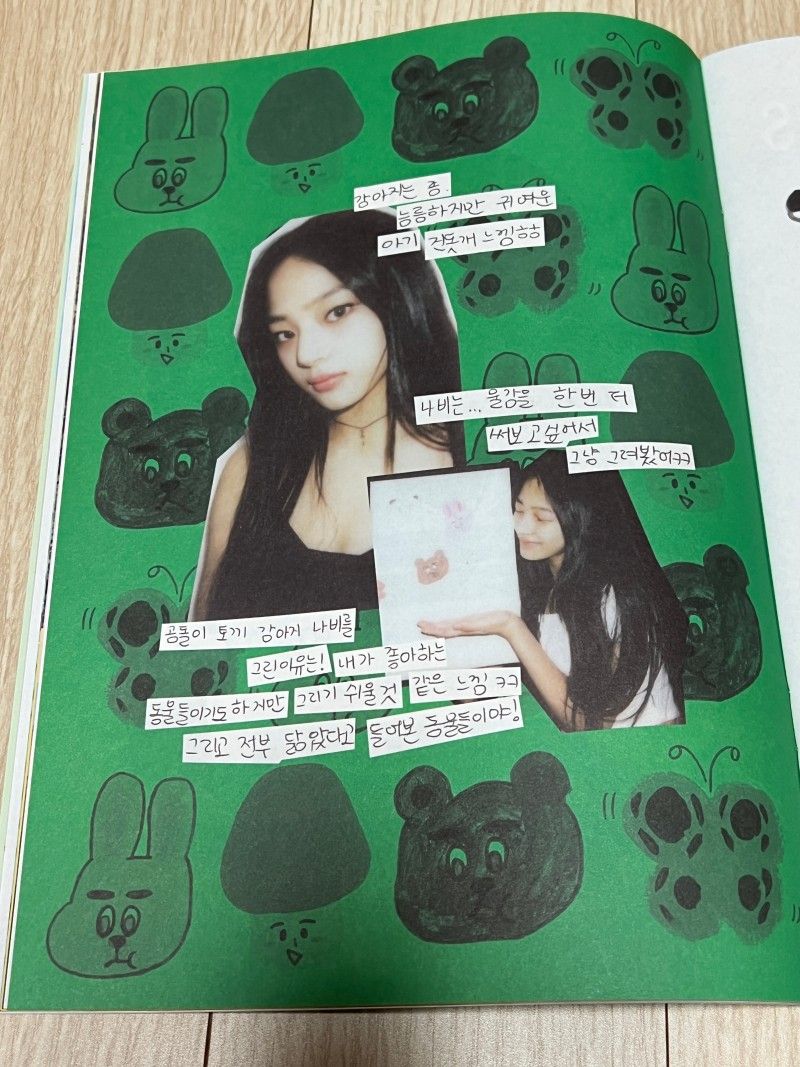 강아지는
늠름하지만 귀여운
아기 진돗개 느낌ㅎㅎ
나비는... 물감을 한번 더
써보고싶어서
그냥 그려봤어ㅋㅋ
곰돌이 토끼 강아지 나비를
그린이유는! 내가 좋아하는
동물들이기도하지만 그리기 쉬울것 같은 느낌 ㅋㅋ
그리고 전부 닮았다고 들어본 동물들이야!